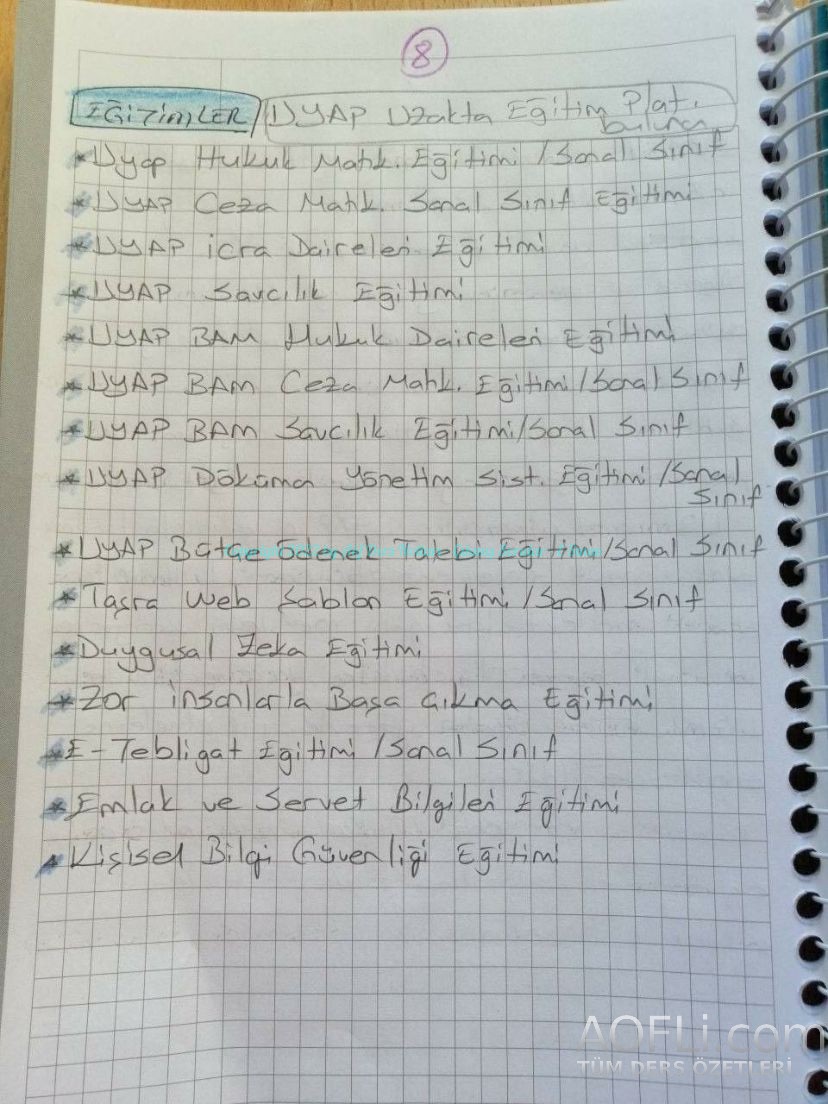 8
EĞİTİMLER / UYAP Uzakta Eğitim Plat.
bulunan
* Uyap Hukuk Mahk. Eğitimi / Sanal Sınıf
* UYAP Ceza Mahk. Sanal Sınıf Eğitimi
* UYAP icra Daireleri Eğitimi
* UYAP Savcılık Eğitimi
* UYAP BAM Hukuk Daireleri Eğitimi
* UYAP BAM Ceza Mahk. Eğitimi / Sanal Sınıf
* UYAP BAM Savcılık Eğitimi / Sanal Sınıf
* UYAP Döküman Yönetim Sist. Eğitimi / Sanal
Sınıf
* UYAP Bütçe Ödenek Talebi Eğitimi / Sanal Sınıf
* Taşra Web Şablon Eğitimi / Sanal Sınıf
* Duygusal Zeka Eğitimi
* Zor insanlarla Başa Çıkma Eğitimi
* E-Tebligat Eğitimi / Sanal Sınıf
* Emlak ve Servet Bilgileri Eğitimi
* Kişisel Bilgi Güvenliği Eğitimi
AOFLi.com
TÜM DERS ÖZETLERİ